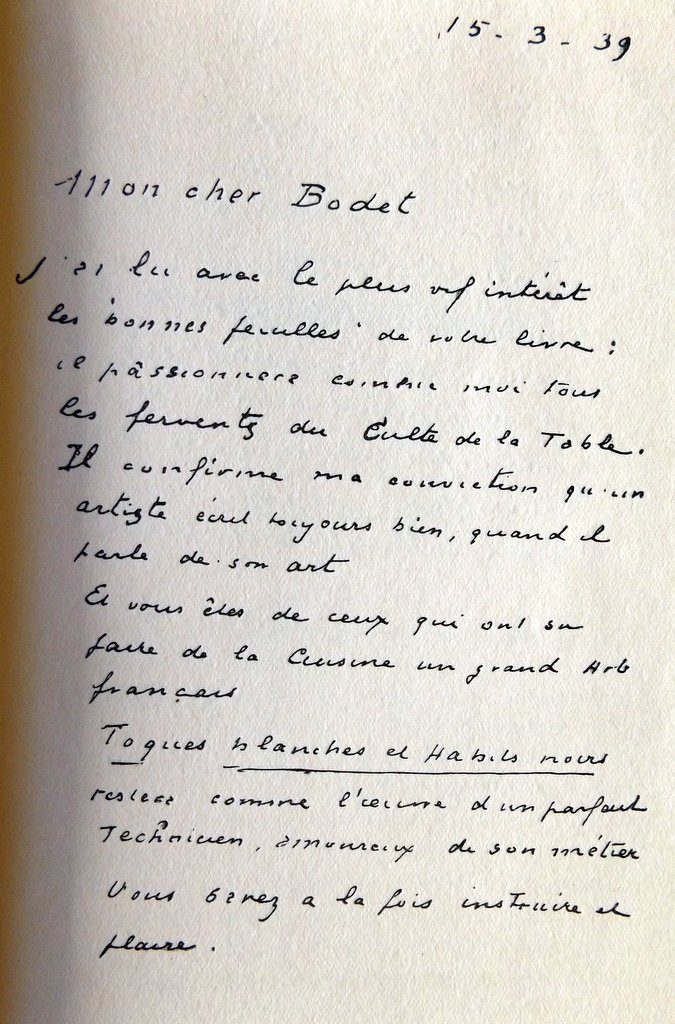 15-3-39
Mon cher Bodet
J'ai lu avec le plus vif intérêt
les "bonnes feuilles" de votre livre :
il passionnera comme moi tous
les fervents du Culte de la Table.
Il confirme ma conviction qu'un
artiste écrit toujours bien, quand il
parle de son art
Et vous êtes de ceux qui ont su
faire de la Cuisine un grand Art
français
Toques blanches et Habits noirs
restera comme l'œuvre d'un parfait
Technicien, amoureux de son métier
Vous savez a la fois instruire et
plaire.